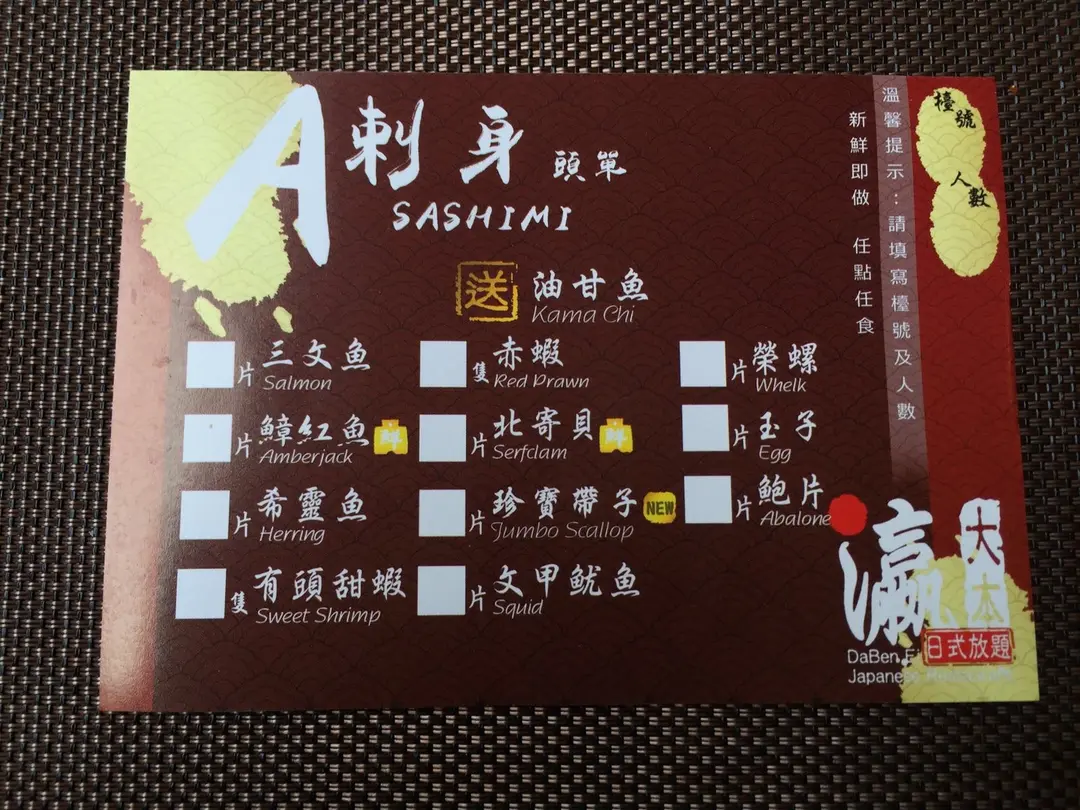 A 刺身 頭單
SASHIMI
送 油甘魚
Kama Chi
片 三文魚
Salmon
片 鱆紅魚 鮮
Amberjack
片 希靈魚
Herring
隻 有頭甜蝦
Sweet Shrimp
隻 赤蝦
Red Prawn
片 北寄貝 鮮
Serfclam
片 珍寶帶子 NEW
Jumbo Scallop
片 文甲魷魚
Squid
片 榮螺
Whelk
片 玉子
Egg
片 鮑片
Abalone
新鮮即做 任點任食
溫馨提示:請填寫檯號及人數
檯號
人數
瀛 大本
日式放題
DaBen
Japanese